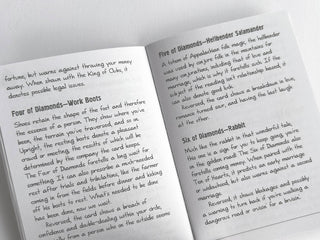 fortune, but warns against throwing your money
away. When shown with the King of Clubs, it
denotes possible legal issues.
Four of Diamonds—Work Boots
Shoes retain the shape of the foot and therefore
the essence of a person. They show where you've
been, the terrain you've traversed, and so in
Upright, the resting boots denote a pleasant
crowd or meeting, the results of which will be
determined by the company the card keeps.
The Four of Diamonds foretells a long wait for
something. It can also prescribe a much-needed
rest after trials and tribulations, like the farmer
coming in from the fields before dinner and taking
off his boots to rest. What's needed to be done
has been done, now we wait.
Reversed, the card shows a breach of
confidence and double-dealing within your circle,
from a person who on the outside seems
Five of Diamonds—Hellbender Salamander
A totem of Appalachian folk magic, the hellbender
was used by conjure folk in the mountains for
many conjurations, including that of love and
marriage, which is why it foretells such. If the
subject of the reading isn't relationship based, it
can also denote good luck.
Reversed, the card shows a breakdown in love,
romance turned sour, and having the last laugh
at the altar.
Six of Diamonds—Rabbit
Much like the rabbit in that wonderful tale,
this one is a sign for you to keep going, you're
on the golden road! The Six of Diamonds
foretells coming money. When paired with the
Ten of Hearts, it predicts an early marriage
or widowhood, but also warns against a second
marriage.
Reversed, it shows blockages and possibly
a warning to turn back if you're walking a
dangerous road or cruisin' for a bruisin'.